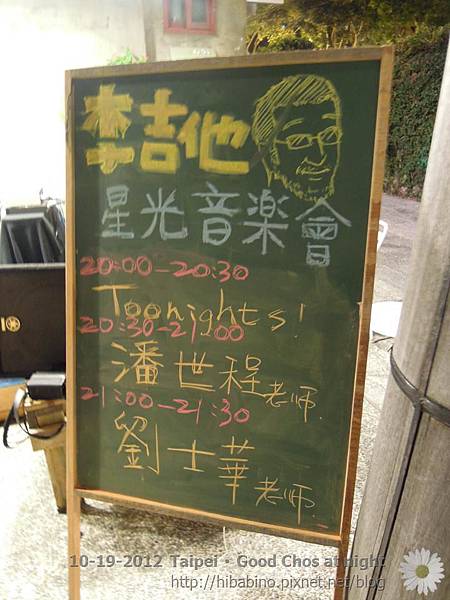 李吉他
星光音楽會
20:00-20:30
Toonights!
20:30-21:00
潘世程老师
21:00-21:30
劉士華老师
10-19-2012 Taipei・Good Chos at night
http://hibabino.pixnet.net/blog